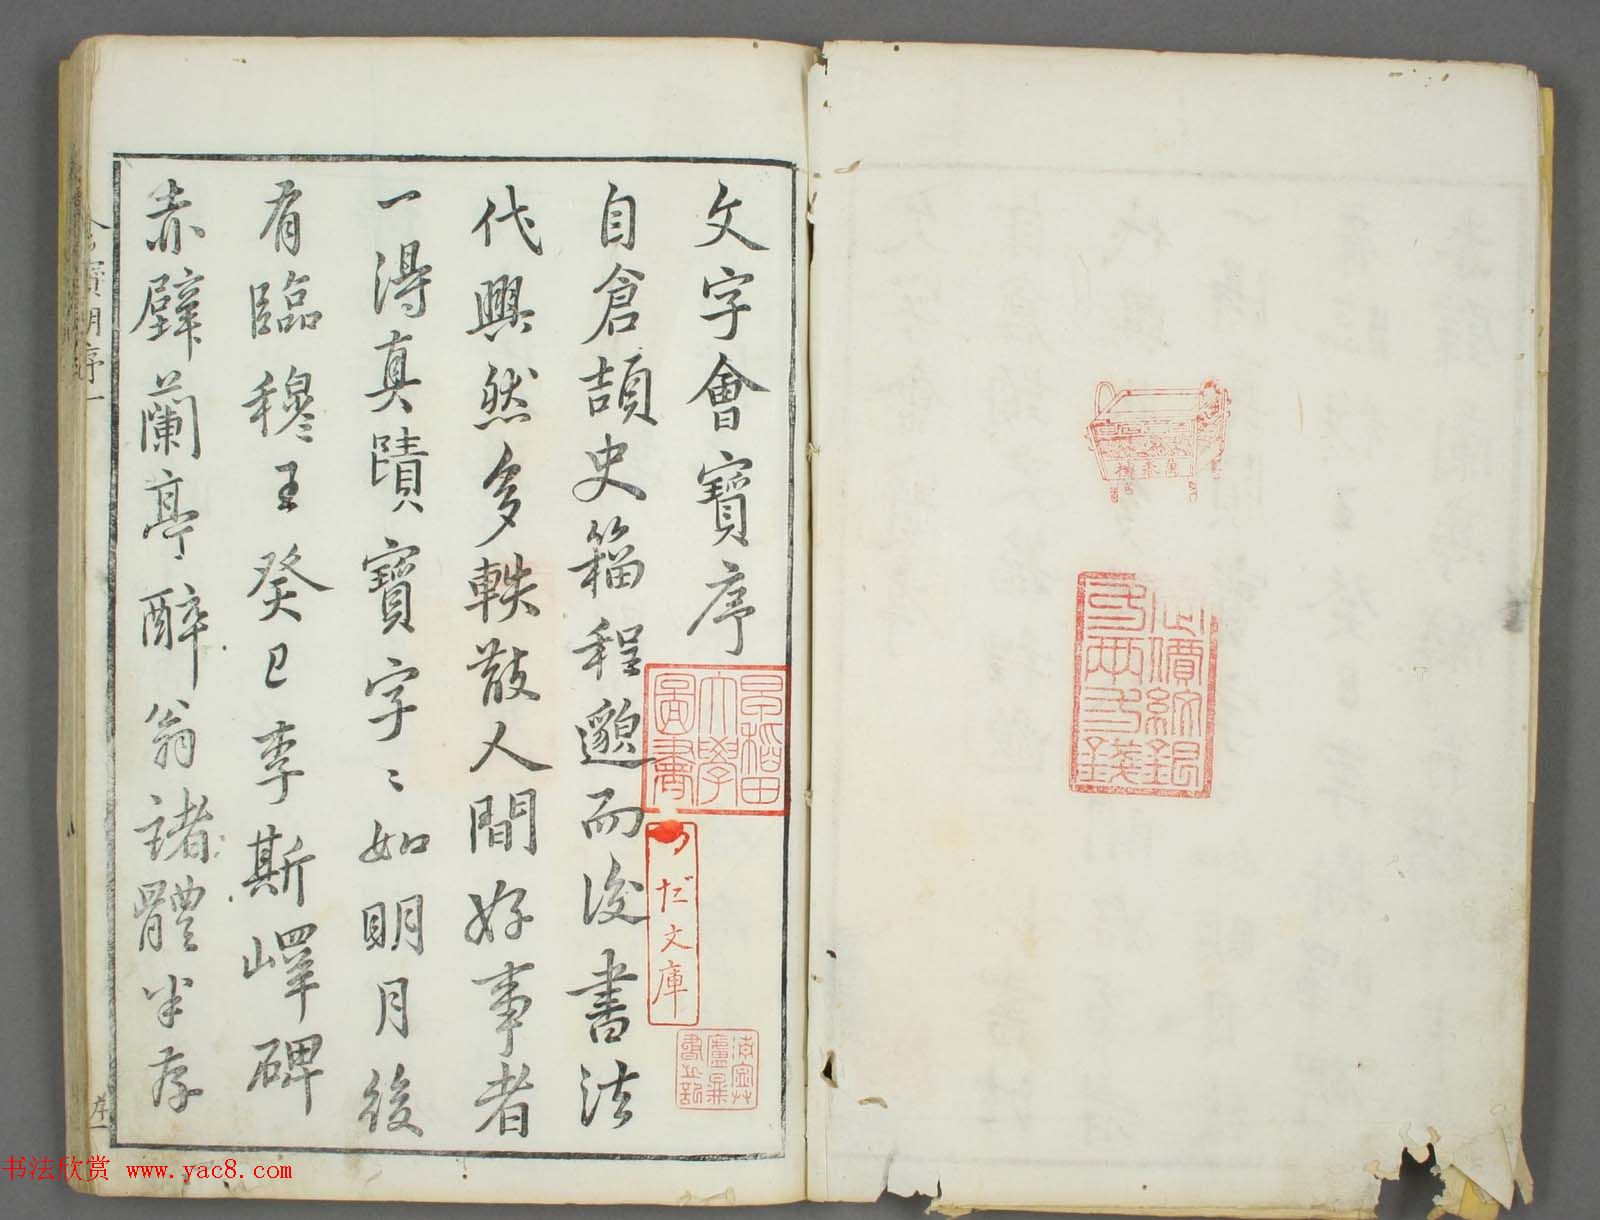 文字會寶序
自倉頡史籀程邈而後書法
代興然多軼散人間好事者
一得真蹟寶字〻如明月後
有臨穆王癸巳李斯嶧碑
赤壁蘭亭醉翁諸體半存
早稻田
大學
圖書
わだ文庫
定價紋銀
序一
书法欣赏 www.yac8.com